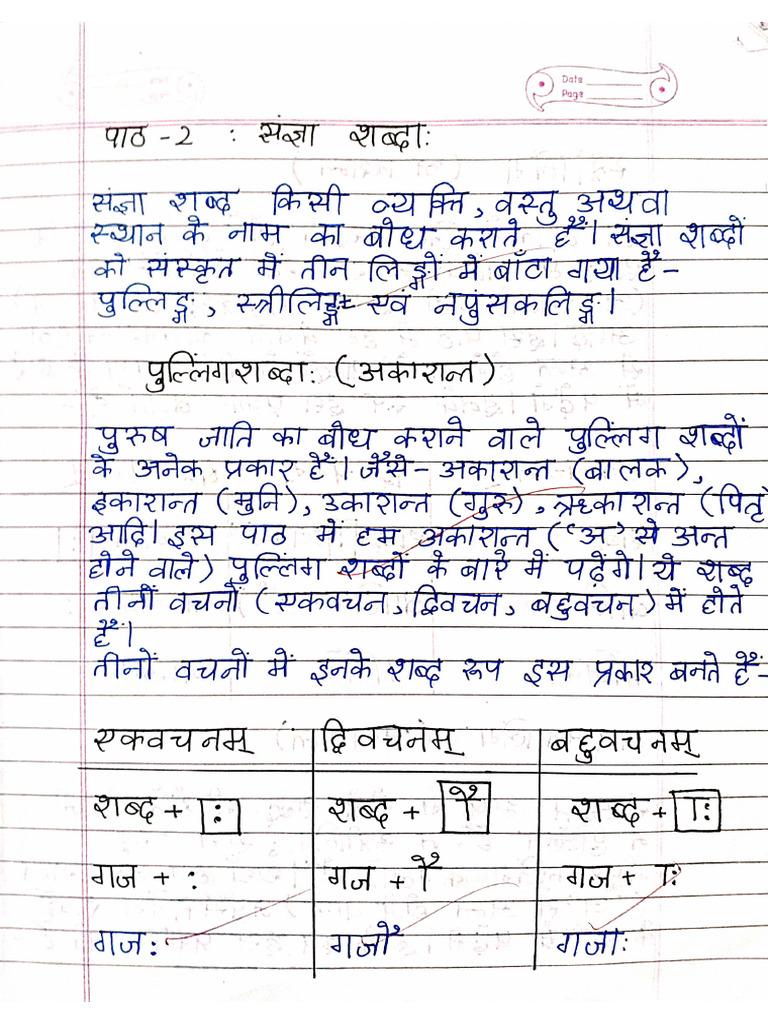 Date
Page
पाठ - 2 : संज्ञा शब्दा:
संज्ञा शब्द किसी व्यक्ति, वस्तु अथवा
स्थान के नाम का बोध कराते हैं। संज्ञा शब्दों
को संस्कृत में तीन लिङ्गों में बाँटा गया है -
पुल्लिङ्ग, स्त्रीलिङ्ग एवं नपुंसकलिङ्ग।
पुल्लिंगशब्दा: (अकारान्त)
पुरुष जाति का बोध कराने वाले पुल्लिंग शब्दों
के अनेक प्रकार हैं। जैसे - अकारान्त (बालक),
इकारान्त (मुनि), उकारान्त (गुरु), ऋकारान्त (पितृ)
आदि। इस पाठ में हम अकारान्त ('अ' से अन्त
होने वाले) पुल्लिंग शब्दों के बारे में पढ़ेंगे। ये शब्द
तीनों वचनों (एकवचन, द्विवचन, बहुवचन) में होते
हैं।
तीनों वचनों में इनके शब्द रूप इस प्रकार बनते हैं -
एकवचनम् द्विवचनम् बहुवचनम्
शब्द + ः शब्द + ौ शब्द + ाः
गज + ः गज + ौ गज + ाः
गज: गजौ गजा: